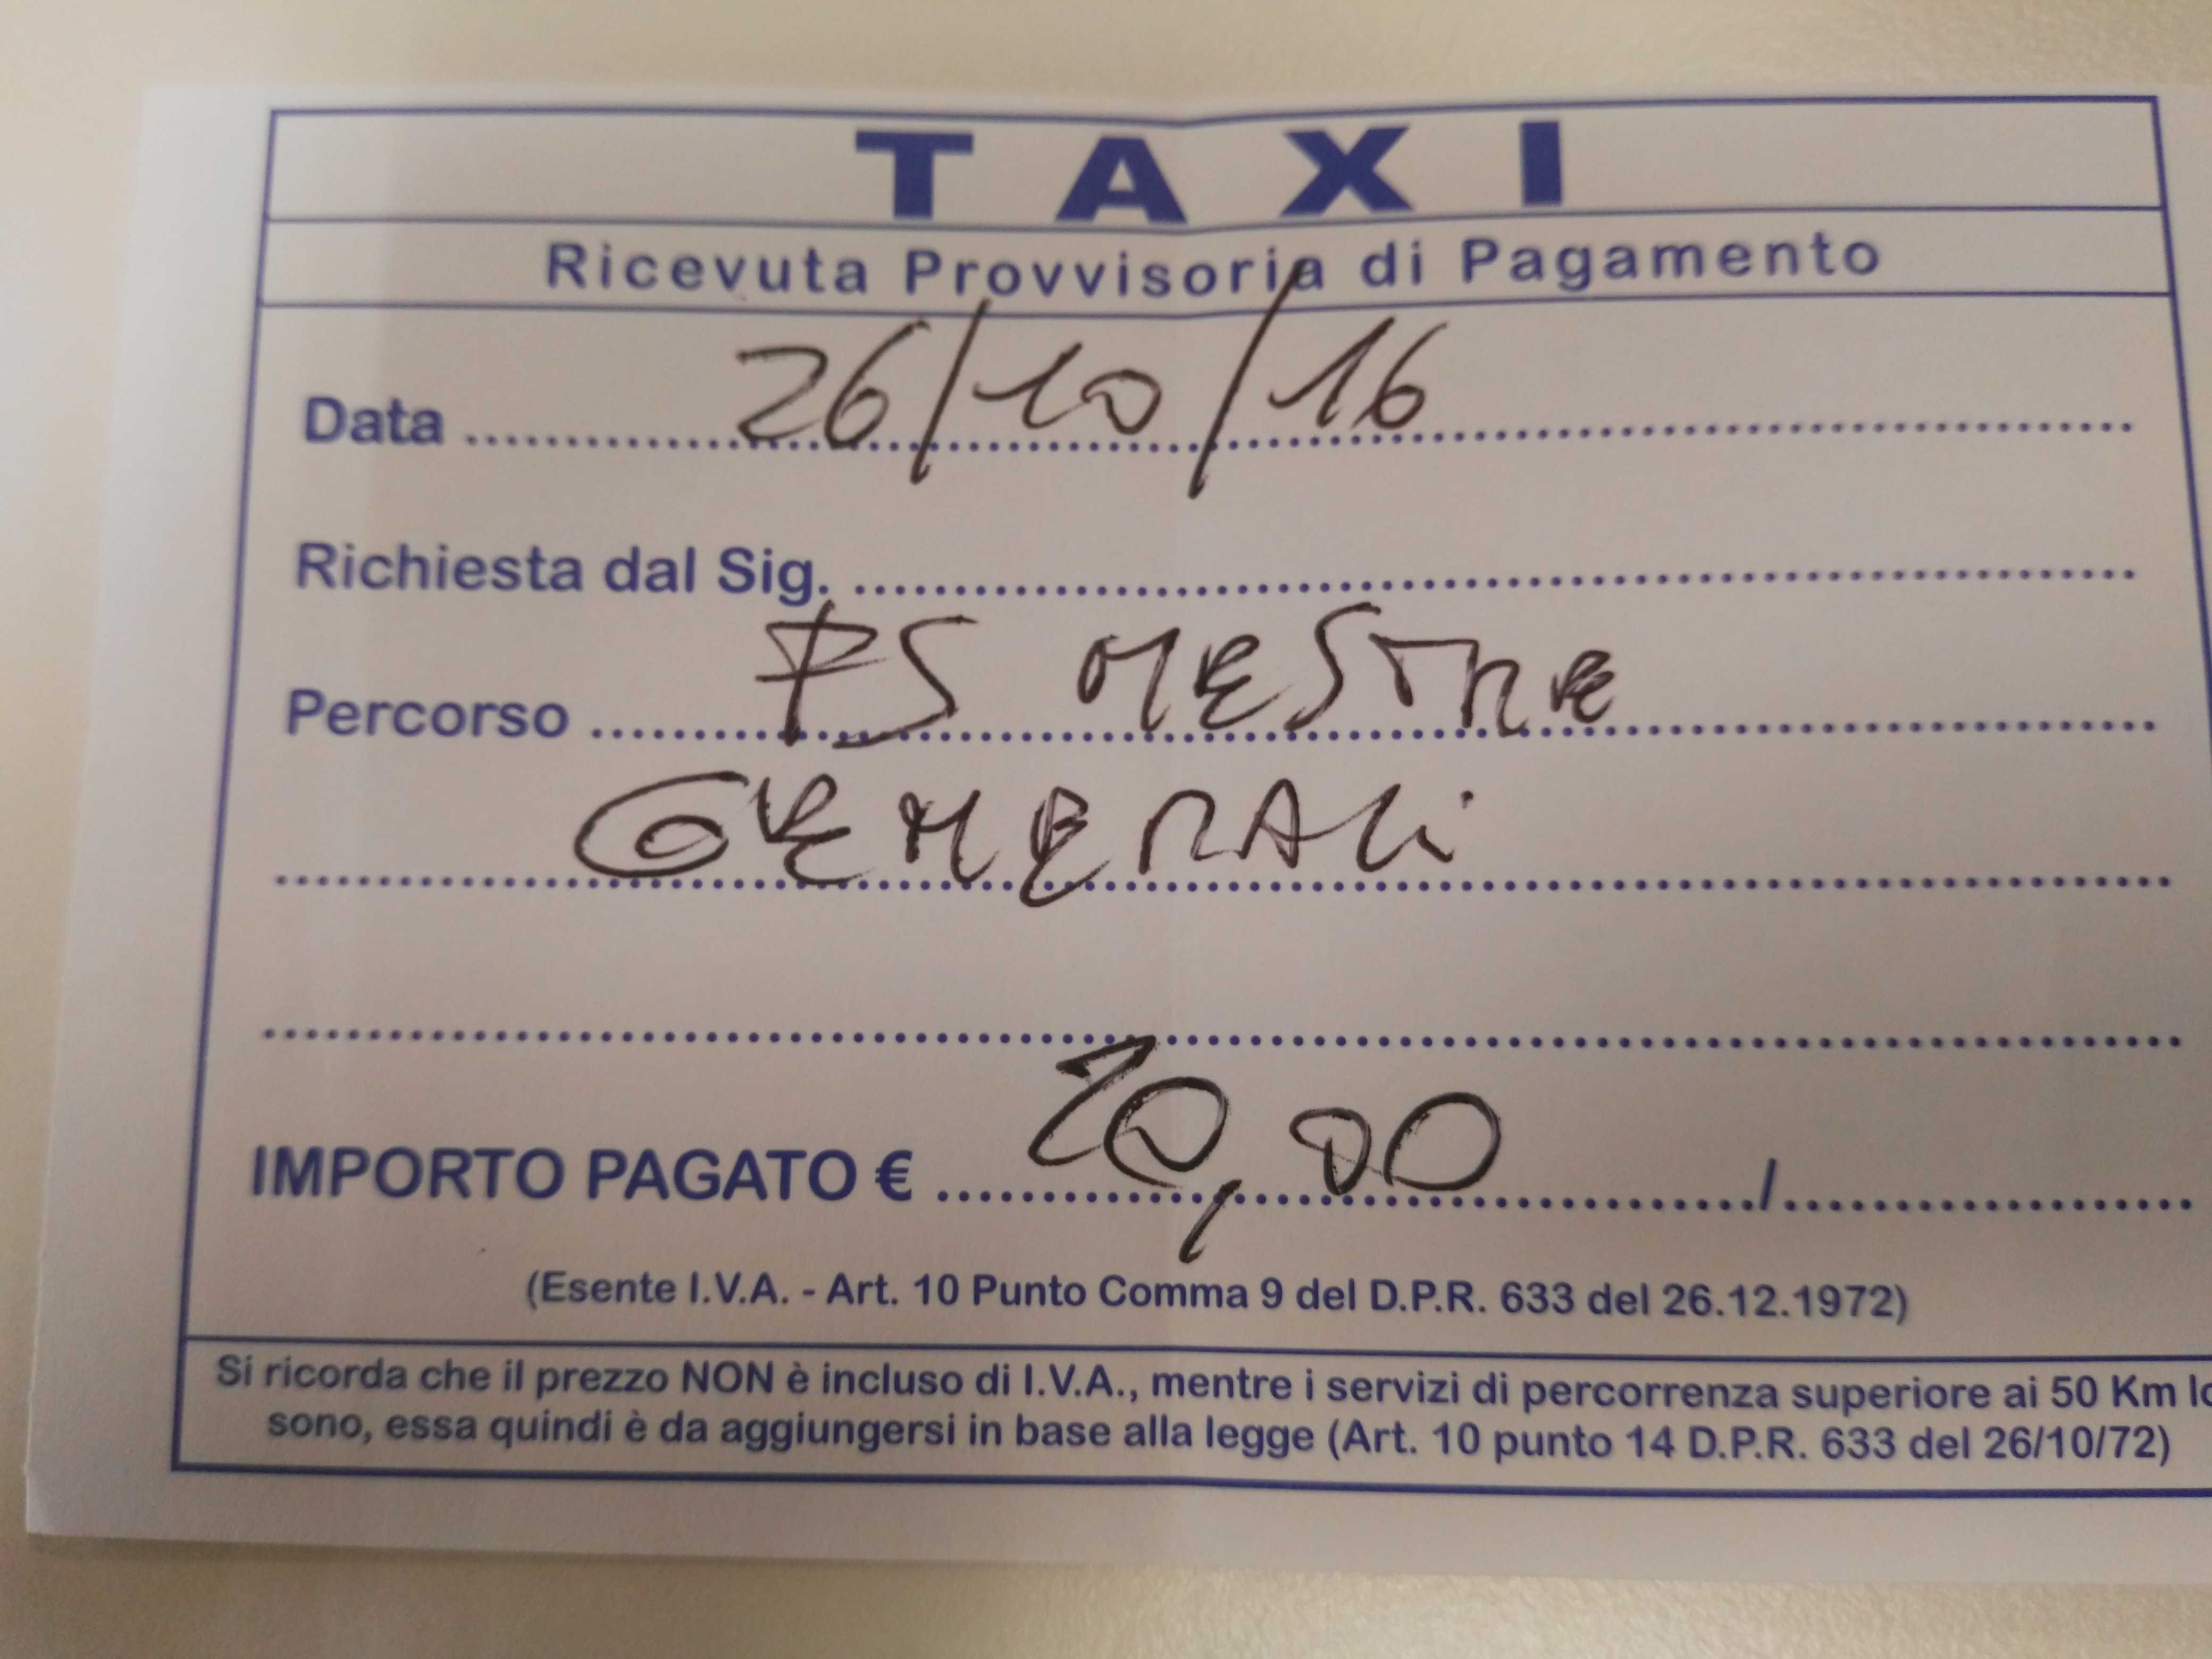 TAXI
Ricevuta Provvisoria di Pagamento
Data 26/10/16
Richiesta dal Sig.
Percorso FS MESTRE
GENERALI
IMPORTO PAGATO € 20,00 /
(Esente I.V.A. - Art. 10 Punto Comma 9 del D.P.R. 633 del 26.12.1972)
Si ricorda che il prezzo NON è incluso di I.V.A., mentre i servizi di percorrenza superiore ai 50 Km lo
sono, essa quindi è da aggiungersi in base alla legge (Art. 10 punto 14 D.P.R. 633 del 26/10/72)